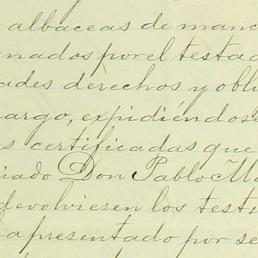 albaceas de manc
nados por el testad
ades derechos y obli
argo, expidiéndose
s certificadas que
ciado Don Pablo Ma
devolviesen los testi
apresentado por se